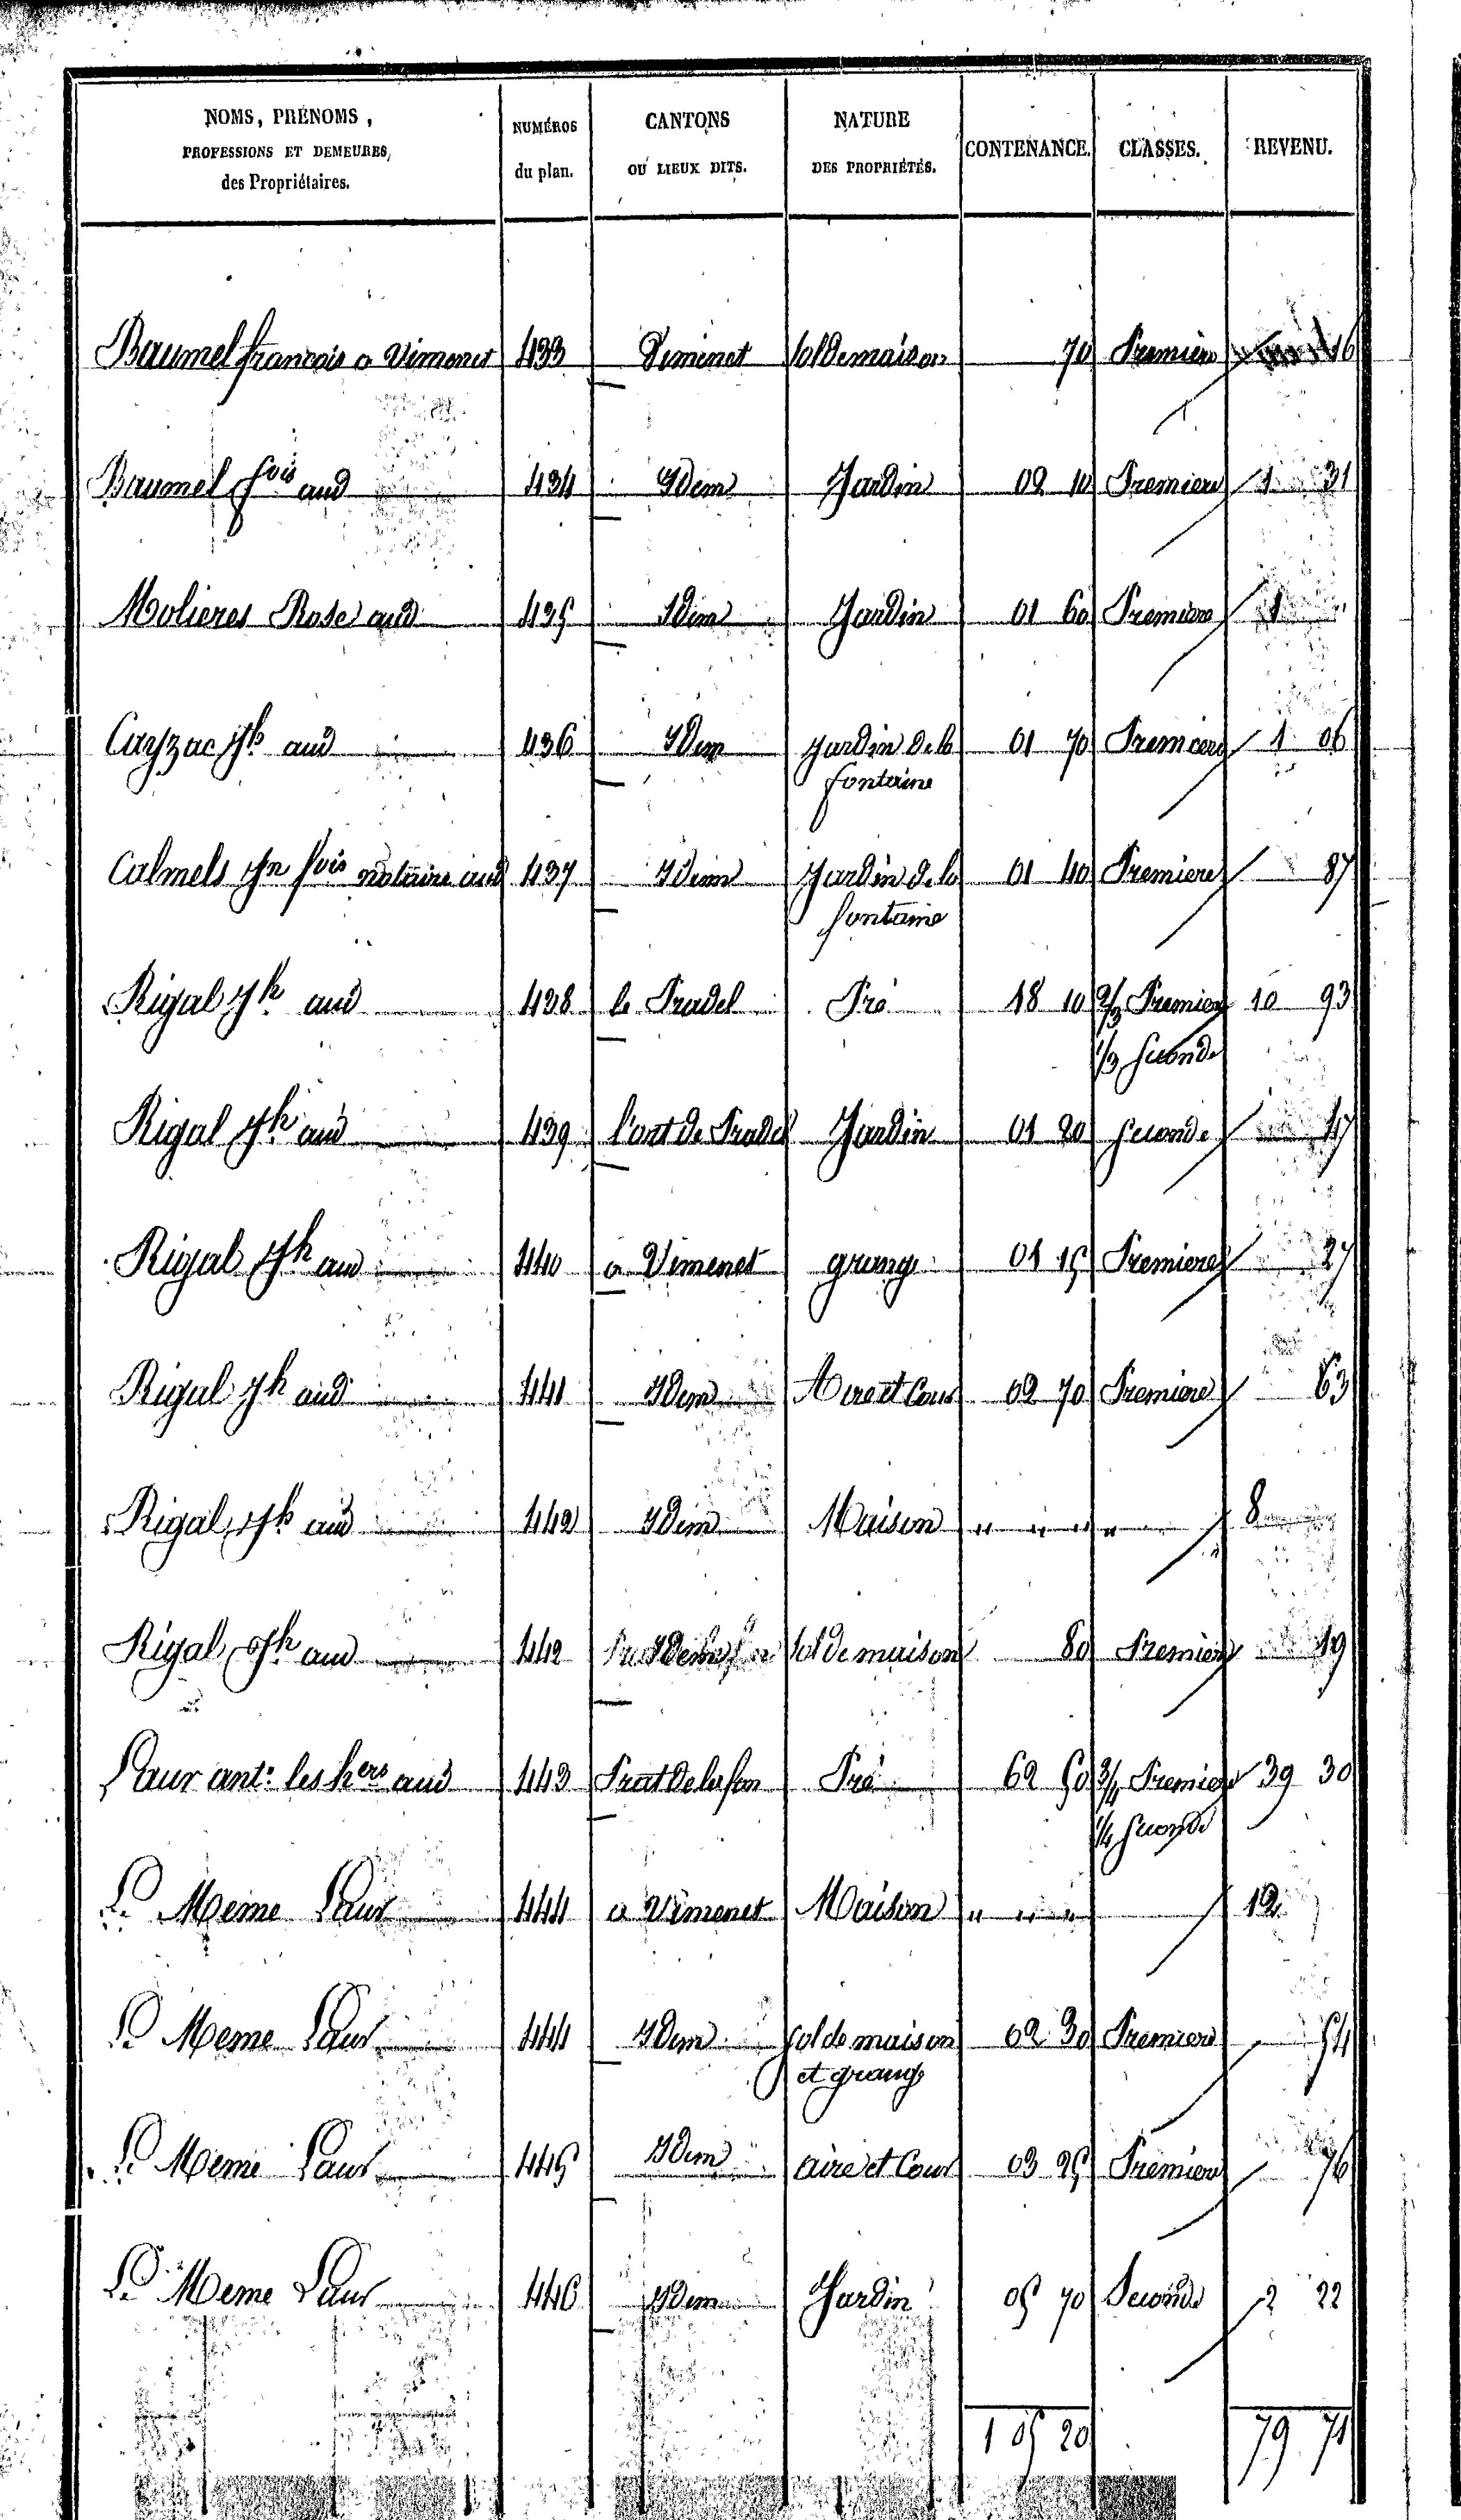 NOMS, PRÉNOMS, PROFESSIONS ET DEMEURES, des Propriétaires. | NUMÉROS du plan. | CANTONS OU LIEUX DITS. | NATURE DES PROPRIÉTÉS. | CONTENANCE. | CLASSES. | REVENU.
Baumel francois a Vimenet 433 Vimenet Sol de maison 70 Premiere 16
Baumel fois aud 434 Idem Jardin 02 10 Premiere 1 31
Molieres Rose aud 435 Idem Jardin 01 60 Premiere 1
Cayzac Jh aud 436 Idem Jardin de la 01 70 Premiere 1 06
fontaine
Calmels Jn fois notaire aud 437 Idem Jardin de la 01 40 Premiere 87
fontaine
Rigal Jh aud 438 le Pradel Pré 18 10 2/3 Premiere 10 93
1/3 Seconde
Rigal Jh aud 439 l'ort de Pradel Jardin 01 20 Seconde 47
Rigal Jh aud 440 a Vimenet grange 01 15 Premiere 27
Rigal Jh aud 441 Idem Aire et Cour 02 70 Premiere 63
Rigal Jh aud 442 Idem Maison " " " " 8
Rigal Jh aud 442 Idem Sol de maison 80 Premiere 19
Saur ant: les hers aud 443 Prat de la fon Pré 62 50 3/4 Premiere 39 30
1/4 Seconde
Le Meme Saur 444 a Vimenet Maison " " " 12
Le Meme Saur 444 Idem Sol de maison 02 30 Premiere 54
et grange
Le Meme Saur 445 Idem aire et Cour 03 25 Premiere 76
Le Meme Saur 446 Idem Jardin 05 70 Seconde 2 22
1 05 20 79 71